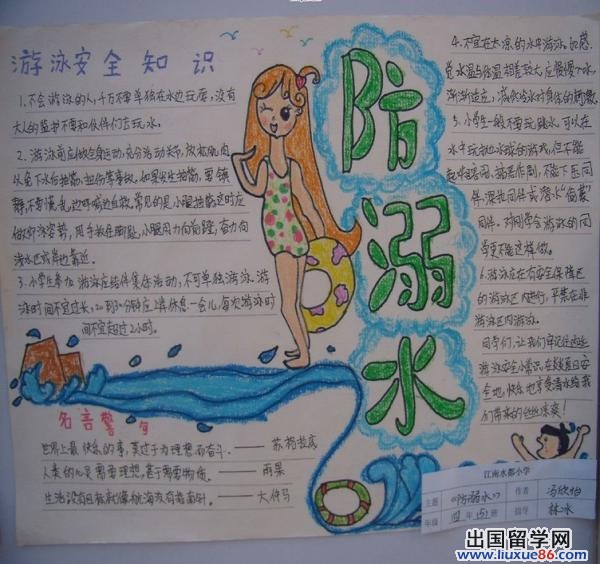 游泳安全知识
1.不会游泳的人,千万不要单独在水边玩耍,没有
大人的监护不要和伙伴们去玩水。
2.游泳前应做全身运动,充分活动关节,放松肌肉
以免下水后抽筋、扭伤等事故。如果发生抽筋,要镇
静,不要慌乱,边呼喊边自救。常见的是小腿抽筋这时应
做仰泳姿势,用手扳住脚趾,小腿用力向前蹬,奋力向
浅水区或岸边靠近。
3.小学生参加游泳应结伴集体活动,不可单独游泳。游
泳时间不宜过长,20到30分钟应上岸休息一会儿,每次游泳时
间不宜超过2小时。
防溺水
4.不宜在太凉的水中游泳。如感
觉水温与体温相差较大,应慢慢入水,
渐渐适应,减少冷水对身体的刺激。
5.小学生一般不要玩跳水,可以在
水中玩抛水球的游戏,但不能
不能下压同
伴、深拉同伴或潜水“偷袭”
同伴。对刚学会游泳的同
学更不能这样做。
6.游泳应在有安全保障区
的游泳区内进行,严禁在非
游泳区内游泳。
同学们,让我们牢记住这些
游泳安全小常识,在
全地、快乐地享受清水给我
们带来的丝丝凉爽!
名言警句
世界上最快乐的事,莫过于为理想而奋斗。——苏格拉底
人类的心灵需要理想甚于需要物质。——雨果
生活没有目标就像航海没有指南针。——大仲马
江南水都小学
主题 《防溺水》 作者 冯欣怡
年级 四年(5)班 指导 林冰
出国留学网
www.liuxue86.com